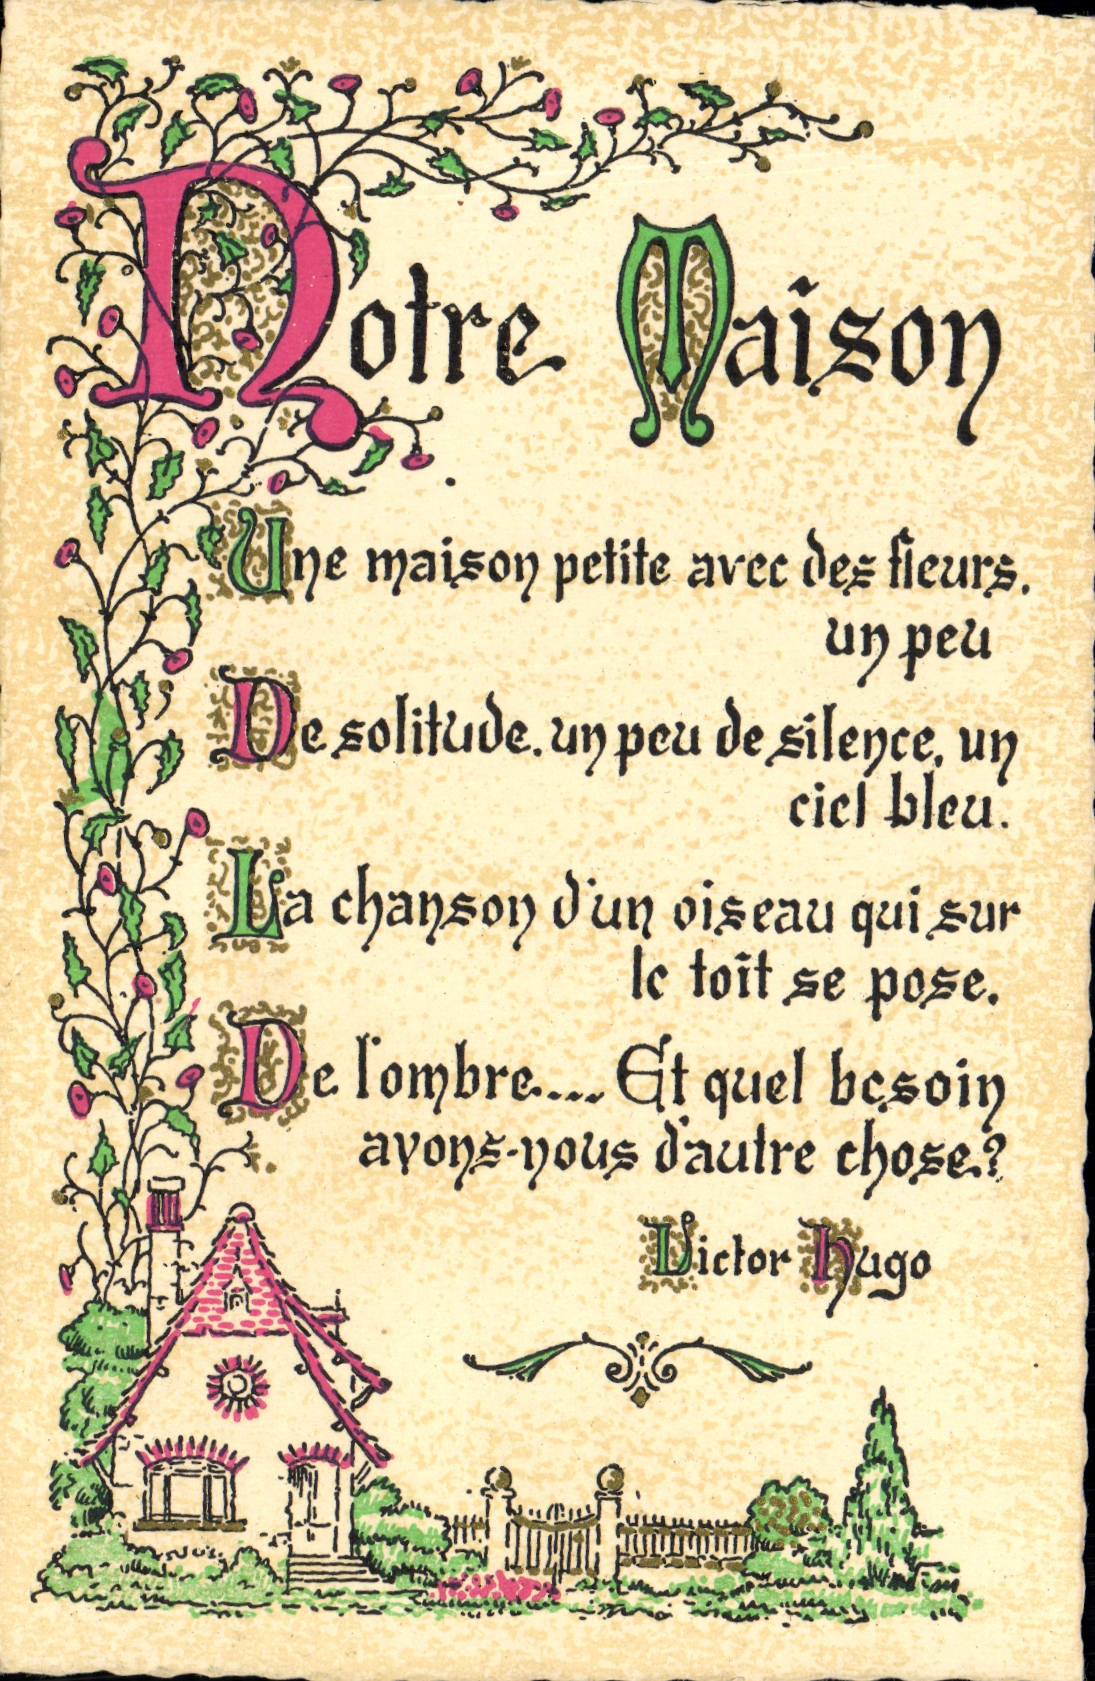 Notre Maison
Une maison petite avec des fleurs,
un peu
De solitude, un peu de silence, un
ciel bleu.
La chanson d'un oiseau qui sur
le toît se pose,
De l'ombre.... Et quel besoin
avons-nous d'autre chose?
Victor Hugo